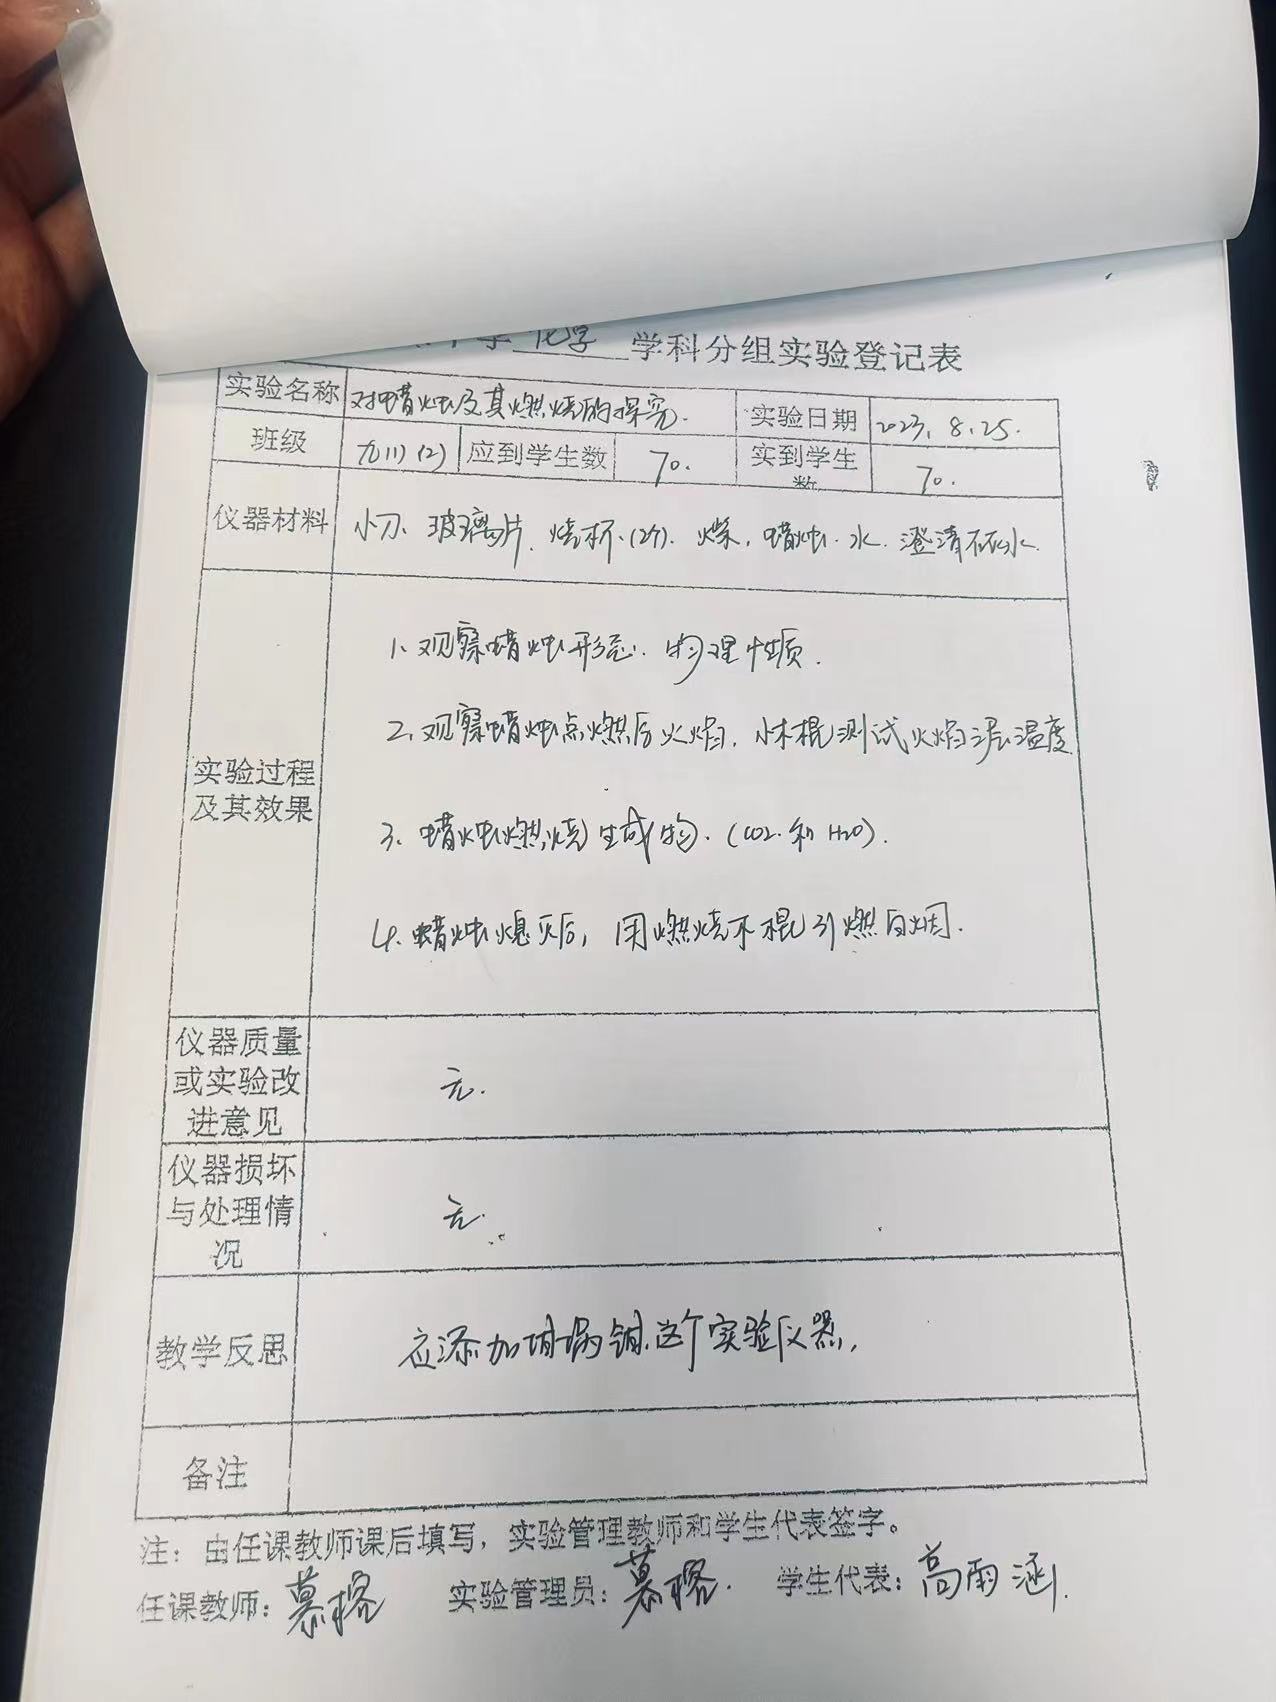 化学 学科分组实验登记表
实验名称 对蜡烛及其燃烧的探究. 实验日期 2023.8.25.
班级 九(1)(2) 应到学生数 70. 实到学生数 70.
仪器材料 小刀、玻璃片、烧杯(2个)、火柴、蜡烛、水、澄清石灰水.
实验过程及其效果
1、观察蜡烛形态、物理性质.
2、观察蜡烛点燃后火焰,小木棍测试火焰层温度
3、蜡烛燃烧生成物.(CO2.和H2O).
4、蜡烛熄灭后,用燃烧木棍引燃白烟.
仪器质量
或实验改
进意见
无.
仪器损坏
与处理情
况
无.
教学反思 应添加坩埚钳这个实验仪器.
备注
注:由任课教师课后填写,实验管理教师和学生代表签字。
任课教师:慕榕 实验管理员:慕榕. 学生代表:高雨涵.